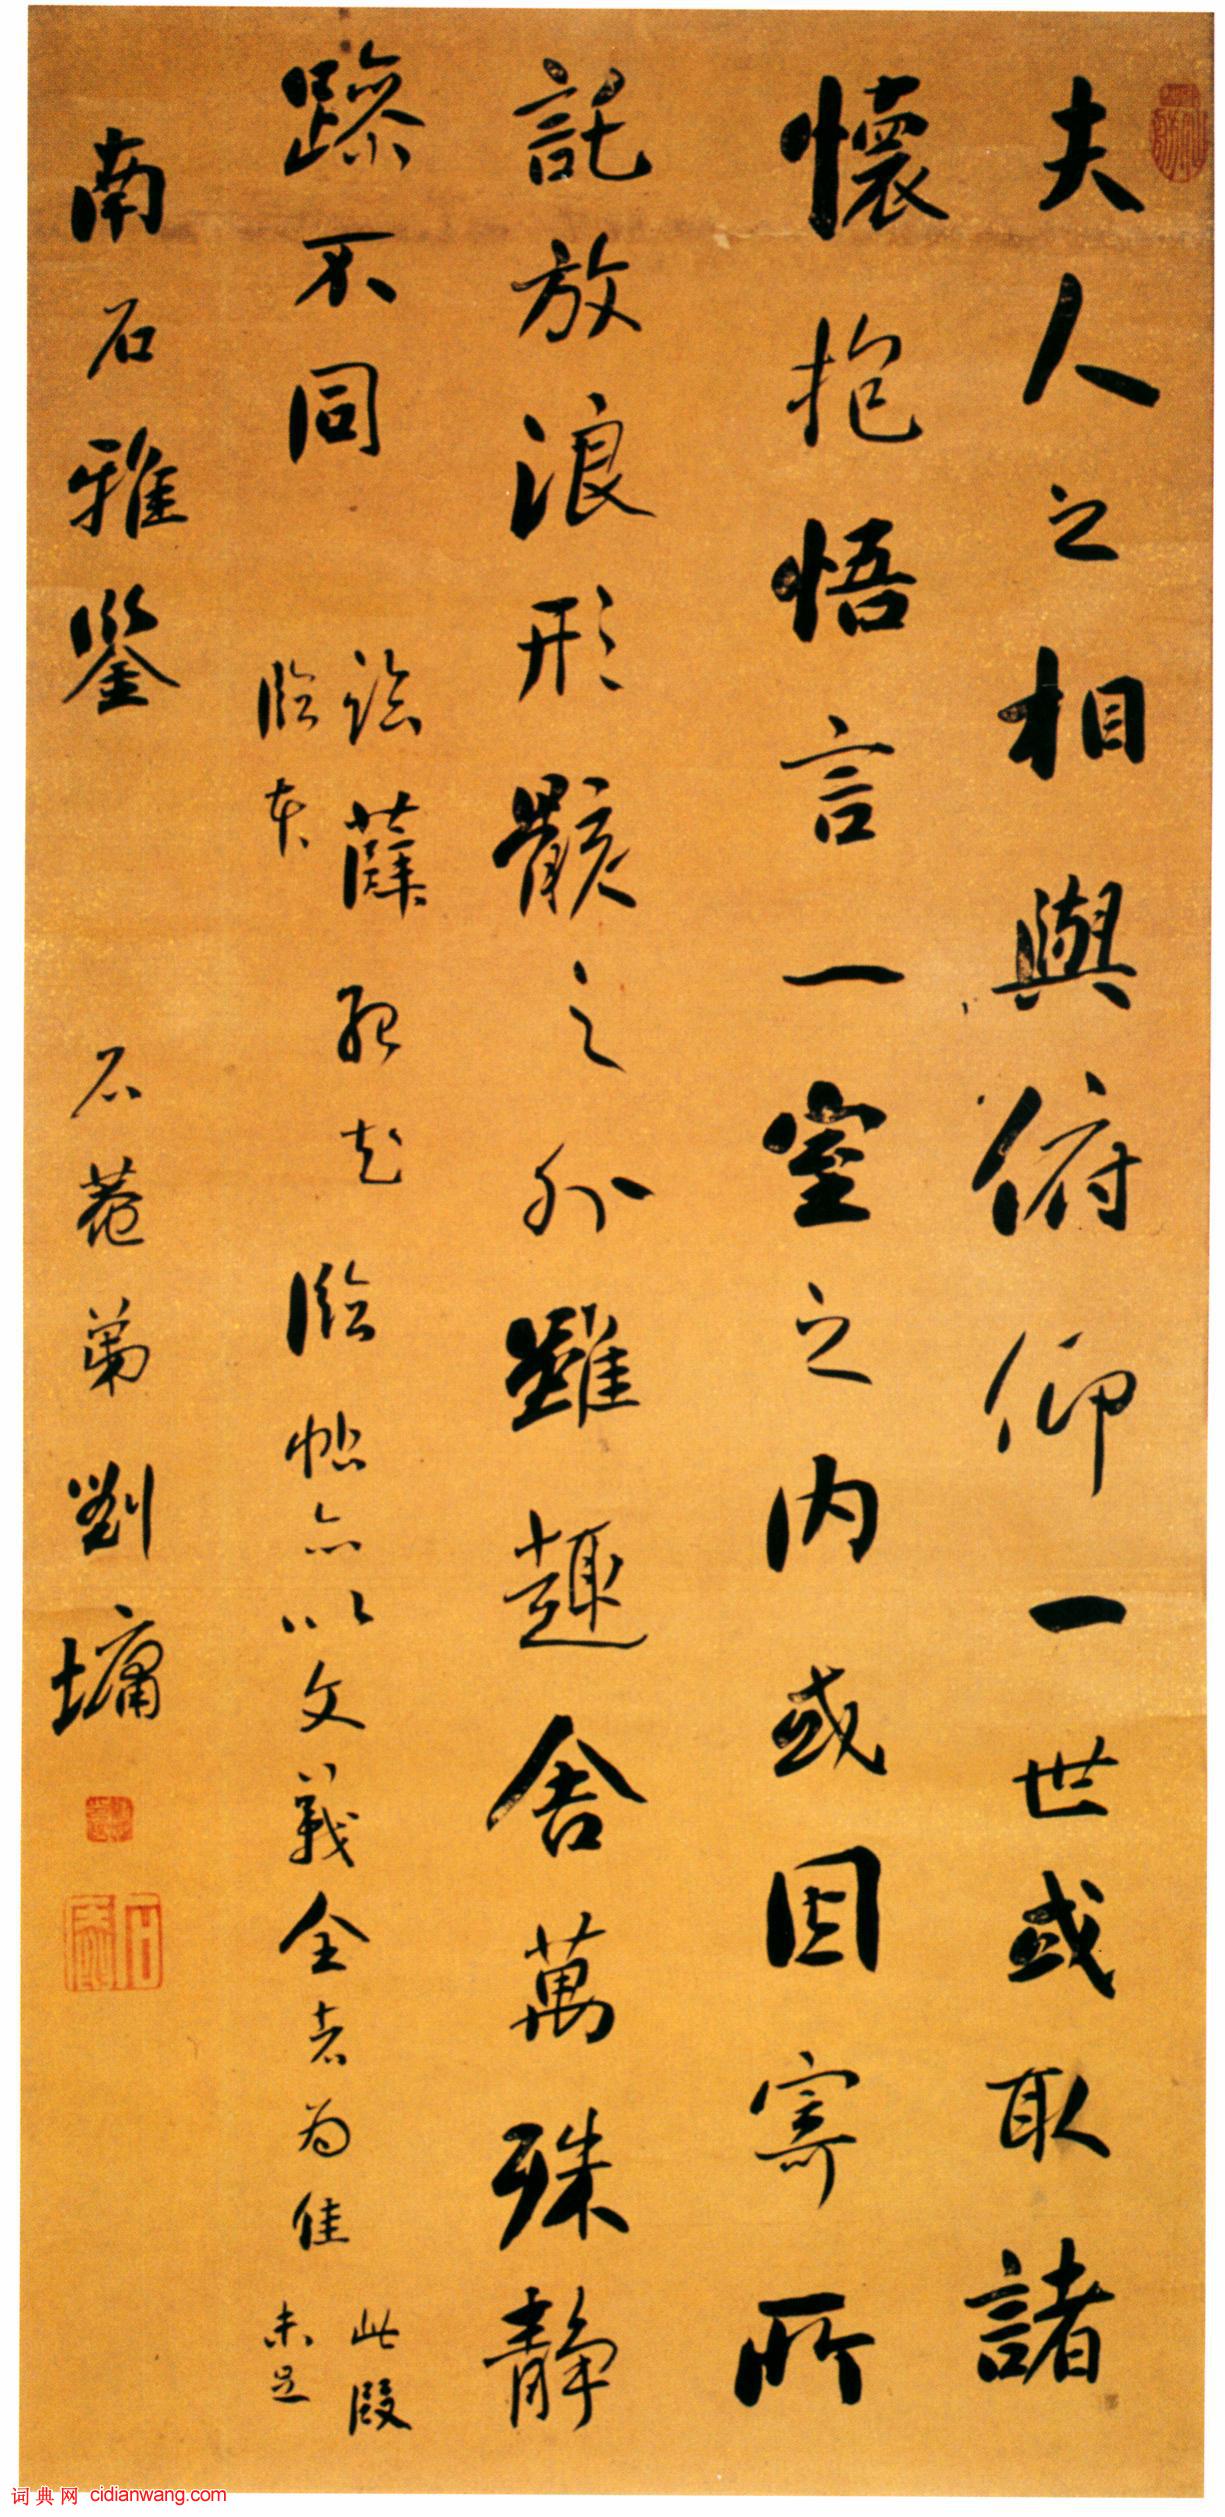 夫人之相與俯仰一世或取諸
懷抱悟言一室之内或因寄所
託放浪形骸之外雖趣舍萬殊静
躁不同
論薛紹
臨本
臨帖亦以文義全者為佳
此段
未足
南石雅鑒
石菴弟劉墉
词典网 cidianwang.com